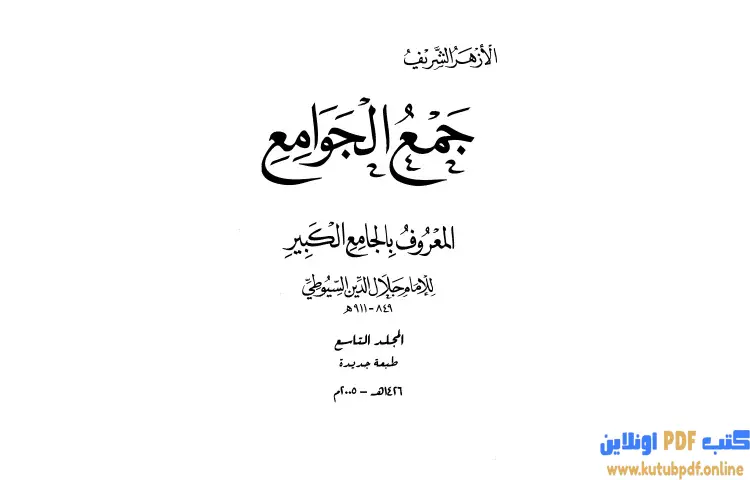 الأزهر الشريف
جَمْعُ الْجَوَامِعِ
المَعْرُوفُ بِالجَامِعِ الْكَبِيرِ
لِلإِمَامِ جَلَالِ الدِّينِ السُّيُوطِيِّ
٨٤٩ - ٩١١هـ
المجلد التاسع
طبعة جديدة
١٤٢٦هـ - ٢٠٠٥م
كتب PDF اونلاين
www.kutubpdf.online